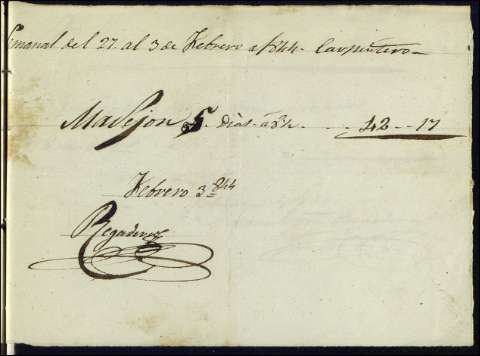 Semanal del 27 al 3 de Febrero de 844. Carpintero
Malejon 5 dias a 8½ 42 -- 17
Febrero 3 844
Regadera